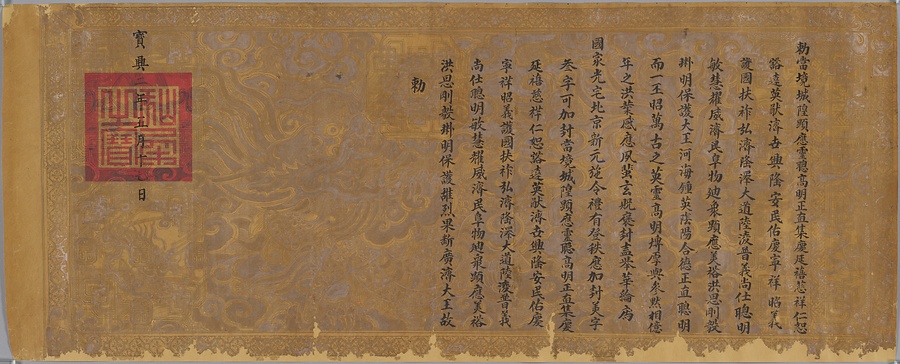 敕當境城隍顯應靈聰高明正直集慶延禧慈祥仁恕
豁達英猷濟世興隆安民佑慶寧祥昭義
護國扶祚弘濟隆深大道陸凌普義尚仕聰明
敏慧耀威濟民阜物迪衆顯應美裕洪恩剛毅
掛明保護大王河海鍾英陰陽合德正直聰明
而一王昭萬古之英靈高明厚與參黙相億
年之洪業感應夙蜚玄貺褒封盍舉華綸爲
國家光宅北京新元施令禮有登秩應加封美字
叁字可加封當境城隍顯應靈聰高明正直集慶
延禧慈祥仁恕豁達英猷濟世興隆安民佑慶
寧祥昭義護國扶祚弘濟隆深大道陸凌普義
尚仕聰明敏慧耀威濟民阜物迪衆顯應美裕
洪恩剛毅掛明保護雄烈果斷廣濟大王故
敕
寶興二年五月十日